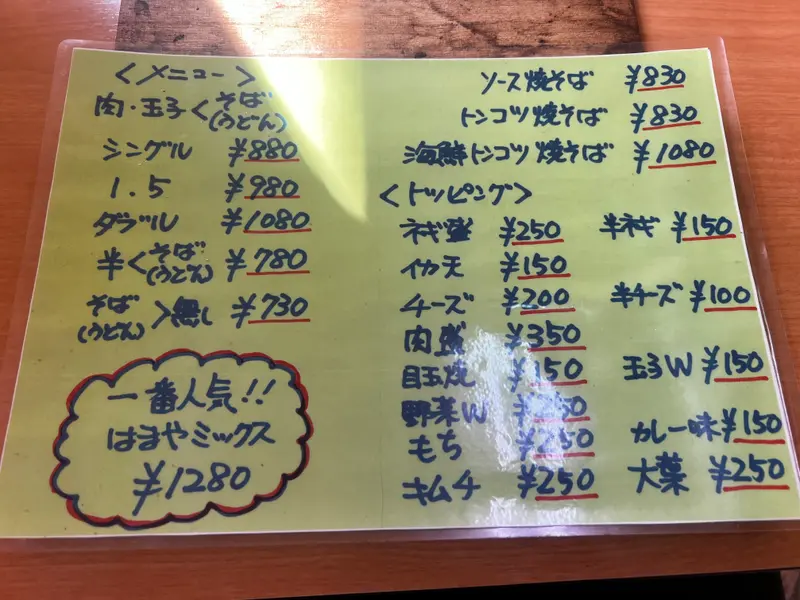 ＜メニュー＞
肉・玉子＜そば
(うどん)
シングル ￥880
1.5 ￥980
ダブル ￥1080
半＜そば
(うどん) ￥780
そば
(うどん)＞無し ￥730
一番人気!!
はまやミックス
￥1280
ソース焼そば ￥830
トンコツ焼そば ￥830
海鮮トンコツ焼そば ￥1080
＜トッピング＞
ネギ盛 ￥250 半ネギ ￥150
イカ天 ￥150
チーズ ￥200 半チーズ ￥100
肉盛 ￥350
目玉焼 ￥150 玉子W ￥150
野菜W
もち ￥250 カレー味 ￥150
キムチ ￥250 大葉 ￥250